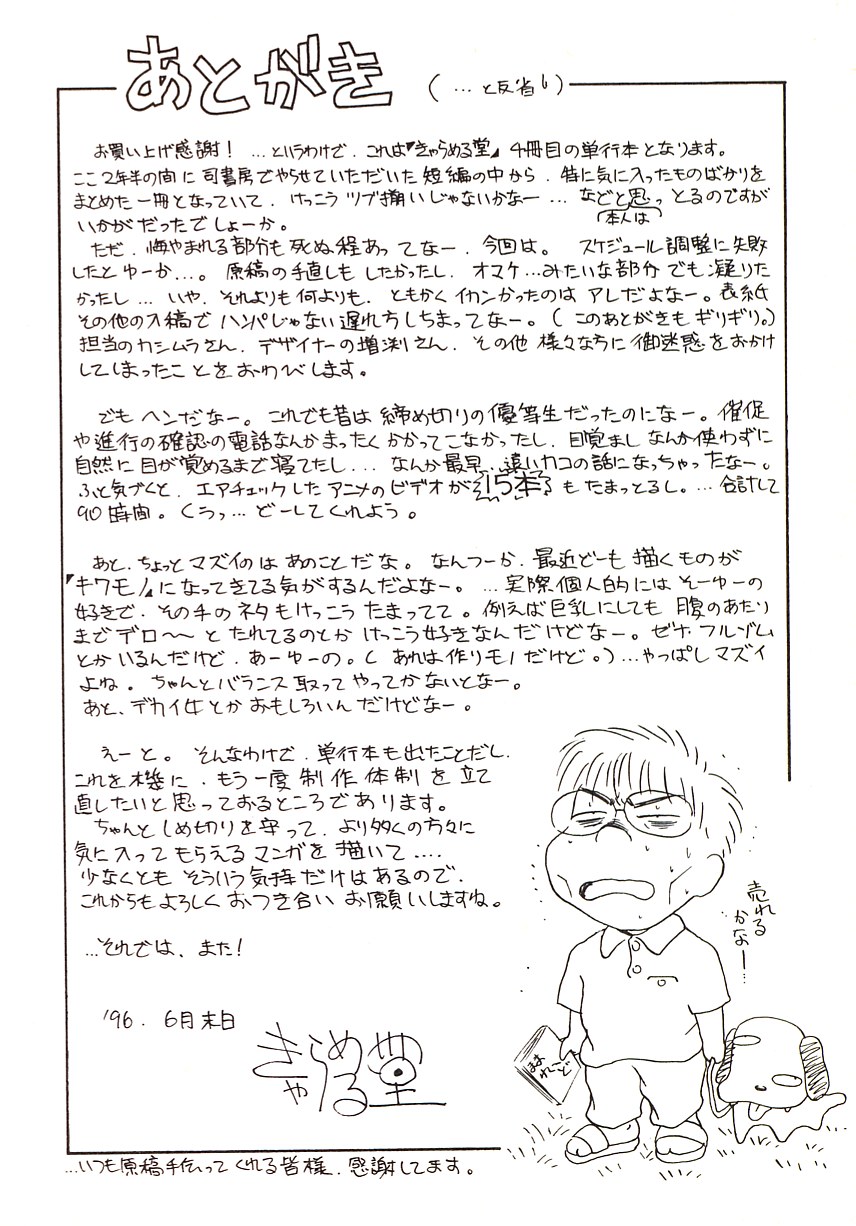 あとがき (…と反省も)
お買い上げ感謝！…というわけで、これは『きゃらめる堂』4冊目の単行本となります。
ここ2年半の間に司書房でやらせていただいた短編の中から、特に気に入ったものばかりを
まとめた一冊となっていて、けっこうツブ揃いじゃないかなー…などと思っとるのですが
本人は
いかがだったでしょーか。
ただ、悔やまれる部分も死ぬ程あってなー、今回は。スケジュール調整に失敗
したとゆーか…。原稿の手直しもしたかったし、オマケ…みたいな部分でも凝りた
かったし…いや、それよりも何よりも、ともかくイカンかったのはアレだよなー。表紙
その他の入稿でハンパじゃない遅れ方しちまってなー。(このあとがきもギリギリ。)
担当のカシムラさん、デザイナーの増渕さん、その他様々な方に御迷惑をおかけ
してしまったことをおわびします。
でもヘンだなー。これでも昔は締め切りの優等生だったのになー。催促
や進行の確認の電話なんかまったくかかってこなかったし、目覚ましなんか使わずに
自然に目が覚めるまで寝てたし…なんか最早、遠いカコの話になっちゃったなー。
ふと気づくと、エアチェックしたアニメのビデオが15本もたまっとるし。…合計して
90時間。くうっ…どーしてくれよう。
あと、ちょっとマズイのはあのことだな。なんつーか、最近どーも描くものが
『キワモノ』になってきてる気がするんだよなー。…実際個人的にはそーゆーの
好きで、その手のネタもけっこうたまってて。例えば巨乳にしても腹のあたり
までデロ〜〜とたれてるのとかけっこう好きなんだけどなー。ゼナ・フルゾム
とかいるんだけど、あーゆーの。(あれは作りモノだけど。)…やっぱしマズイ
よね。ちゃんとバランス取ってやってかないとなー。
あと、デカイ女とかおもしろいんだけどなー。
えーと。そんなわけで、単行本も出たことだし、
これを機に、もう一度制作体制を立て
直したいと思っておるところであります。
ちゃんとしめ切りを守って、より多くの方々に
気に入ってもらえるマンガを描いて‥‥
少なくともそういう気持だけはあるので、
これからもよろしくおつき合いお願いしますね。
…それでは、また！
'96. 6月末日
きゃらめる堂
売れる
かなー…
はあ
れこど
…いつも原稿手伝ってくれる皆様、感謝してます。